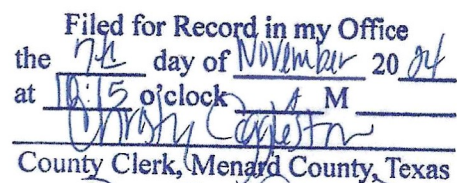 Filed for Record in my Office
the 7th day of November 20 24
at o'clock M
County Clerk, Menard County, Texas